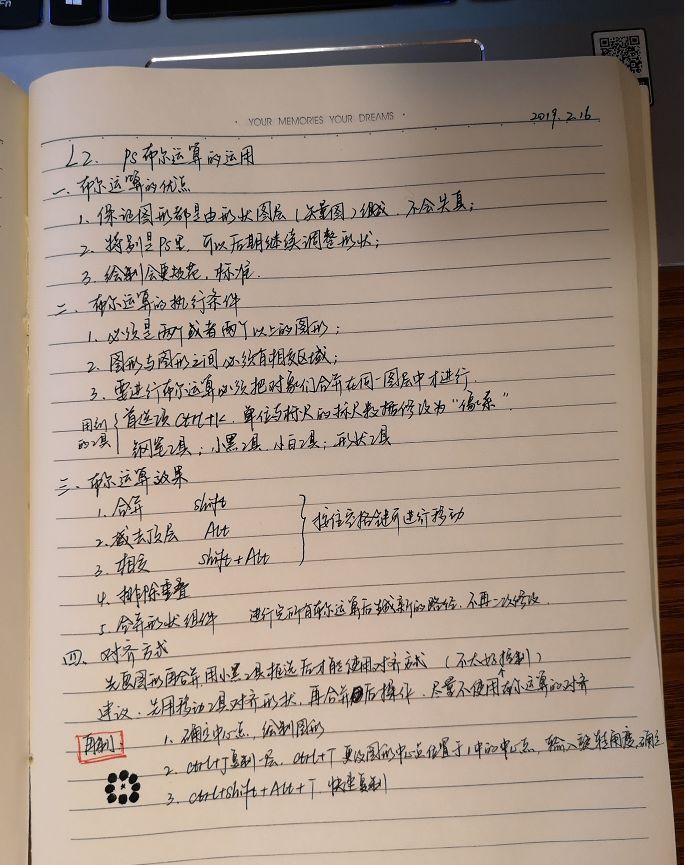 Fn
YOUR MEMORIES YOUR DREAMS
2019.2.16
L2. PS布尔运算的运用
一、布尔运算的优点
1. 保证图形都是由形状图层(矢量图)组成,不会失真;
2. 特别是PS里,可以后期继续调整形状;
3. 绘制会更规范,标准.
二、布尔运算的执行条件
1. 必须是两个或者两个以上的图形;
2. 图形与图形之间必须有相交区域;
3. 要进行布尔运算必须把对象们合并在同一图层中才进行.
用到的工具
首选项 Ctrl+K, 单位与标尺的标尺数据修改为“像素”.
钢笔工具; 小黑工具, 小白工具; 形状工具
三、布尔运算效果
1. 合并 shift
2. 减去顶层 Alt
3. 相交 shift+Alt
按住空格键可进行移动
4. 排除重叠
5. 合并形状组件 进行完所有布尔运算后生成新的路径,不再二次修改.
四、对齐方式
先要图形再合并,用小黑工具框选后才能使用对齐方式 (不太好控制)
建议:先用移动工具对齐形状,再合并后操作,尽量不使用布尔运算的对齐
再制:
1. 确定中心点,绘制图形
2. ctrl+J复制一层,ctrl+T 更改图形中心点位置于1中的中心点,输入旋转角度,确定
3. ctrl+shift+Alt+T 快速复制